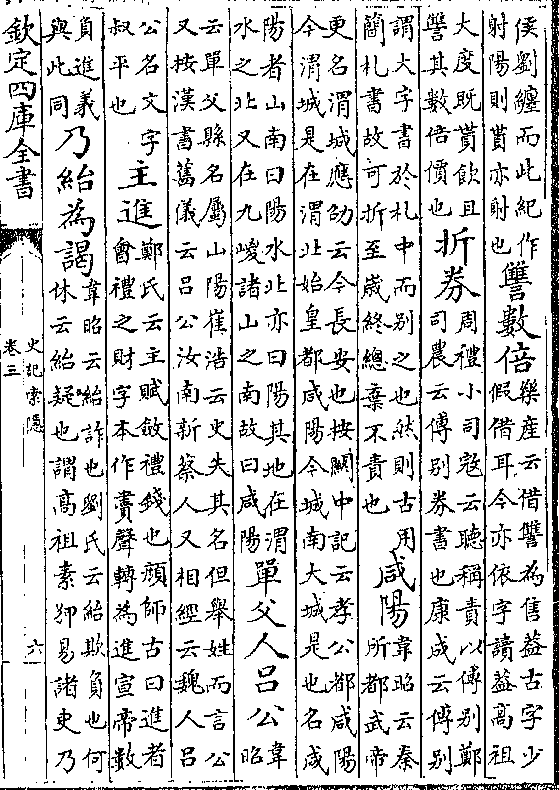 侯劉纏而此紀作
射陽則貰亦射也
讐數倍
樂産云借讐為售蓋古字少
假借耳今亦依字讀蓋高祖
大度既貰飲且
讐其數倍價也
折券
周禮小司寇云聽稱責以傅别鄭
司農云傅别券書也康成云傅别
謂大字書於札中而别之也然則古用
簡札書故可折至歳終總棄不責也
咸陽
韋昭云秦
所都武帝
更名渭城應劭云今長安也按闗中記云孝公都咸陽
今渭城是在渭北始皇都咸陽今城南大城是也名咸
陽者山南曰陽水北亦曰陽其地在渭
水之北又在九嵕諸山之南故曰咸陽
單父人吕公
韋
昭
云單父縣名屬山陽崔浩云史失其名但舉姓而言公
又按漢書舊儀云吕公汝南新蔡人又相經云魏人吕
公名文字
叔平也
主進
鄭氏云主賦斂禮錢也顔師古曰進者
會禮之財字本作賮聲轉為進宣帝數
負進義
與此同
乃紿為謁
韋昭云紿詐也劉氏云紿欺負也何
休云紿疑也謂高祖素狎易諸吏乃
欽定四庫全書
史記索隱
卷三
六